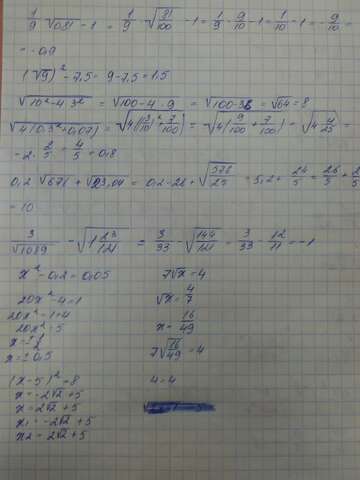 1/9 · √0,81 - 1 = 1/9 · √81/100 - 1 = 1/9 · 9/10 - 1 = 1/10 - 1 = - 9/10 =
= - 0,9
(√9)² - 7,5 = 9 - 7,5 = 1,5
√10² - 4·3² = √100 - 4 · 9 = √100 - 36 = √64 = 8
√4(0,3² + 0,07) = √4((3/10)² + 7/100) = √4(9/100 + 7/100) = √4 4/25 =
= 2 · 2/5 = 4/5 = 0,8
0,2 √676 + √23,04 = 0,2 · 26 + √576/25 = 5,2 + 24/5 = 26/5 + 2
= 10
3/√1089 - √1 23/121 = 3/33 - √144/121 = 3/33 - 12/11 = -1
x² - 0,2 = 0,05
20x² - 4 = 1
20x² = 1 + 4
20x² = 5
x = ± 1/2
x = ± 0,5
(x - 5)² = 8
x = -2√2 + 5
x = 2√2 + 5
x₁ = -2√2 + 5
x₂ = 2√2 + 5
7√x = 4
√x = 4/7
x = 16/49
7√16/49 = 4
4 = 4